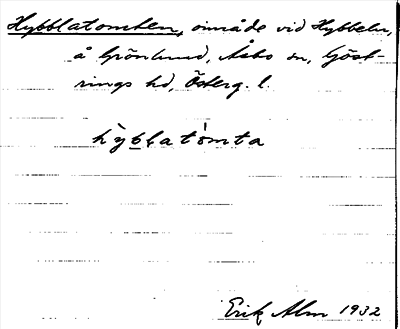 Hybblatomten, område vid Hybbeln,
å Grönlund, Åsbo sn, Göst-
rings hd, Österg. l.
hỳblatómta
Erik Alm 1932